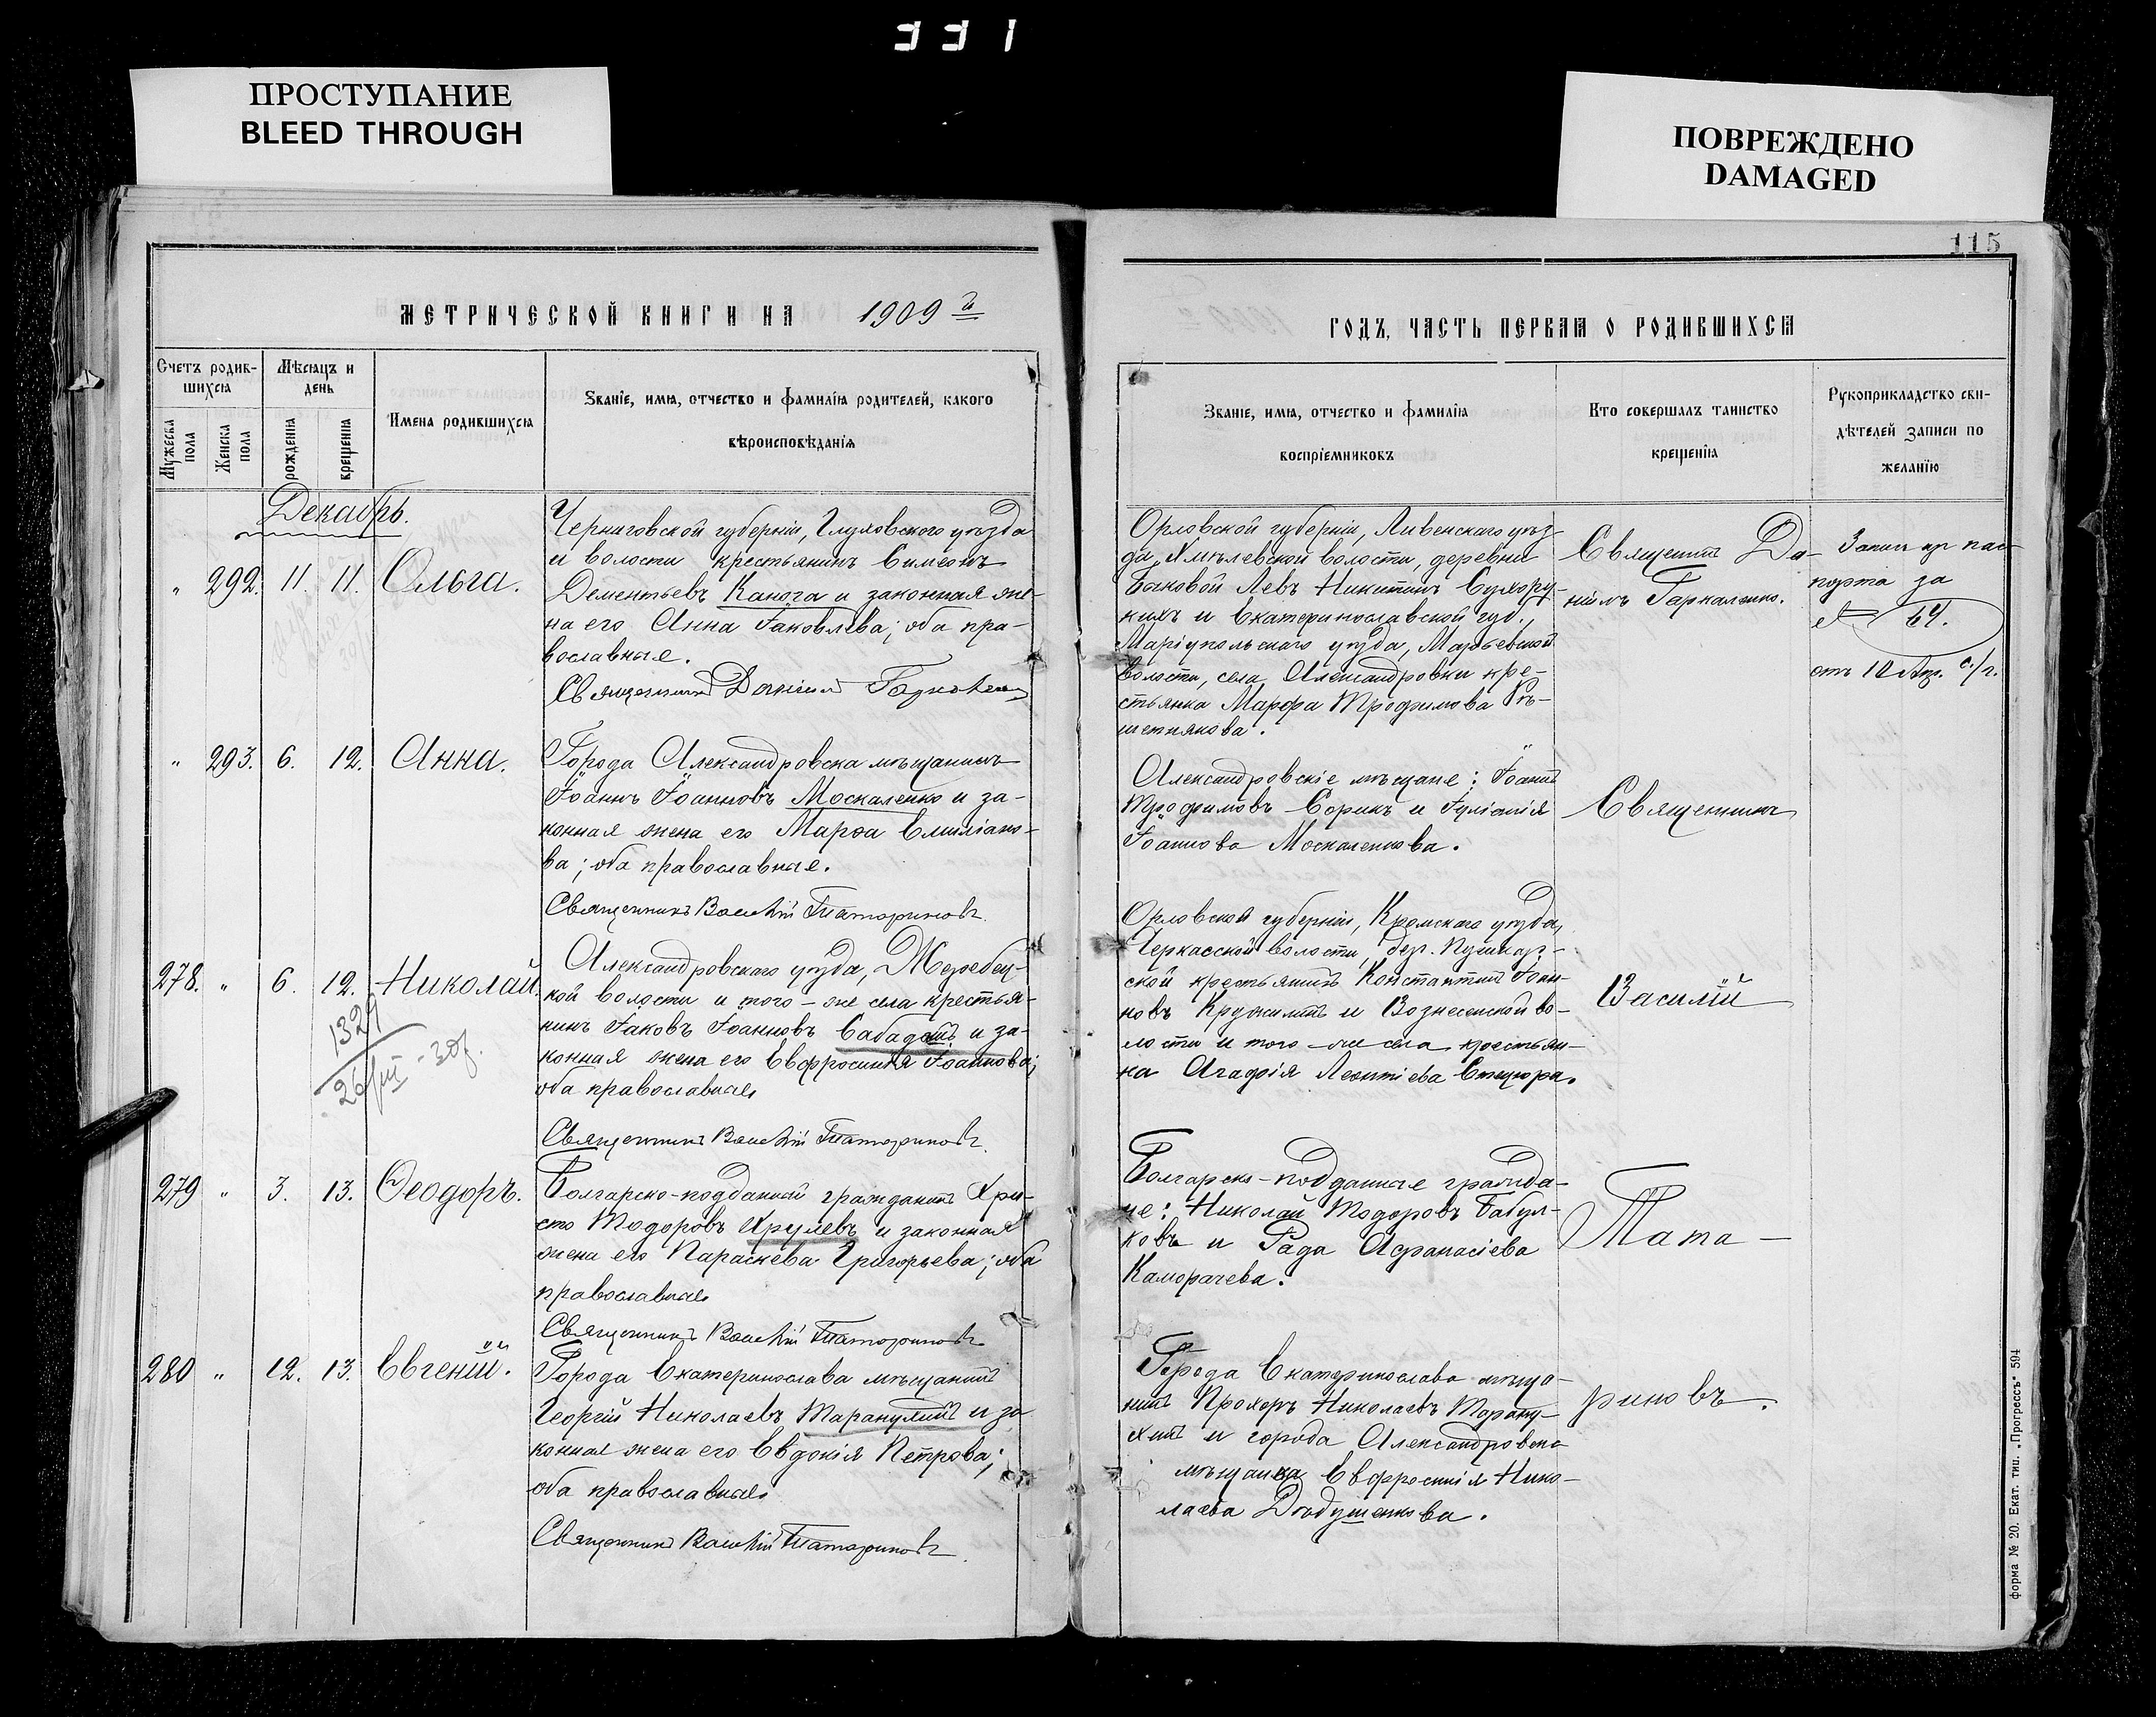 331
ПРОСТУПАНИЕ
BLEED THROUGH
ПОВРЕЖДЕНО
DAMAGED
115
МЕТРИЧЕСКОЙ КНИГИ НА 1909 й
ГОДЪ, ЧАСТЬ ПЕРВАЯ О РОДИВШИХСЯ
Счетъ родив-
шихся
Мѣсяцъ и
день
Мужеска пола
Женска пола
рожденія
крещенія
Имена родившихся
Званіе, имя, отчество и фамилія родителей, какого
вѣроисповѣданія
Званіе, имя, отчество и фамилія
воспріемниковъ
Кто совершалъ таинство
крещенія
Рукоприкладство сви-
дѣтелей записи по
желанію
Декабрь.
" 292. 11. 11. Ольга.
Черниговской губерніи, Глуховского уѣзда
и волости крестьянинъ Симеонъ
Дементьевъ Канога и законная же-
на его Анна Іаковлева; оба пра-
вославные.
Священникъ Даніилъ
Орловской губерніи, Ливенскаго уѣз-
да, Хмѣлевской волости, деревни
Быковой Левъ Никитинъ Сухору-
кихъ и Екатеринославской губ.,
Маріупольскаго уѣзда, Марьевской
волости, села Александровки кре-
стьянка Марфа Трофимова Рѣ-
шетнякова.
Священникъ Да-
ніилъ
Запись пр. пас-
порта за
№ 64.
отъ 12 Апр. с/г.
" 293. 6. 12. Анна.
Города Александровска мѣщанинъ
Іоаннъ Іоанновъ Москаленко и за-
конная жена его Марѳа Емиліано-
ва; оба православные.
Священникъ Василій Татариновъ
Александровскіе мѣщане: Іоаннъ
Трофимовъ Сорикъ и Іуліанія
Іоаннова Москаленкова.
Священникъ
278. " 6. 12. Николай.
1329
26/III - 30г.
Александровскаго уѣзда, Жеребец-
кой волости и того-же села крестья-
нинъ Іаковъ Іоанновъ Сабадашъ и за-
конная жена его Евфросинія Іоаннова;
оба православные
Священникъ Василій Татариновъ
Орловской губерніи, Кромскаго уѣзда,
Черкасской волости, дер. Пушкар-
ской крестьянинъ Константинъ Іоан-
новъ и Вознесенской во-
лости и того-же села крестьян-
ка Агафія Леонтіева Стецюра.
Василій
279 " 3. 13. Ѳеодоръ.
Болгарско-подданный гражданинъ Хри-
сто Тодоровъ Хрулевъ и законная
жена его Параскева Григорьева; оба
православные
Священникъ Василій Татариновъ
Болгарско-подданные гражда-
не: Николай Тодоровъ Бабул-
ковъ и Рада Афанасіева
Каморачева.
Тата-
280 " 12. 13. Евгеній.
Города Екатеринослава мѣщанинъ
Георгій Николаевъ Таранухинъ и за-
конная жена его Евдокія Петрова;
оба православные
Священникъ Василій Татариновъ
Города Екатеринослава мѣща-
нинъ Прохоръ Николаевъ Тарану-
хинъ и города Александровска
мѣщанка Евфросинія Нико-
лаева Дябушенкова.
риновъ.
форма № 20. Екат. тип. „Прогрессъ" 594